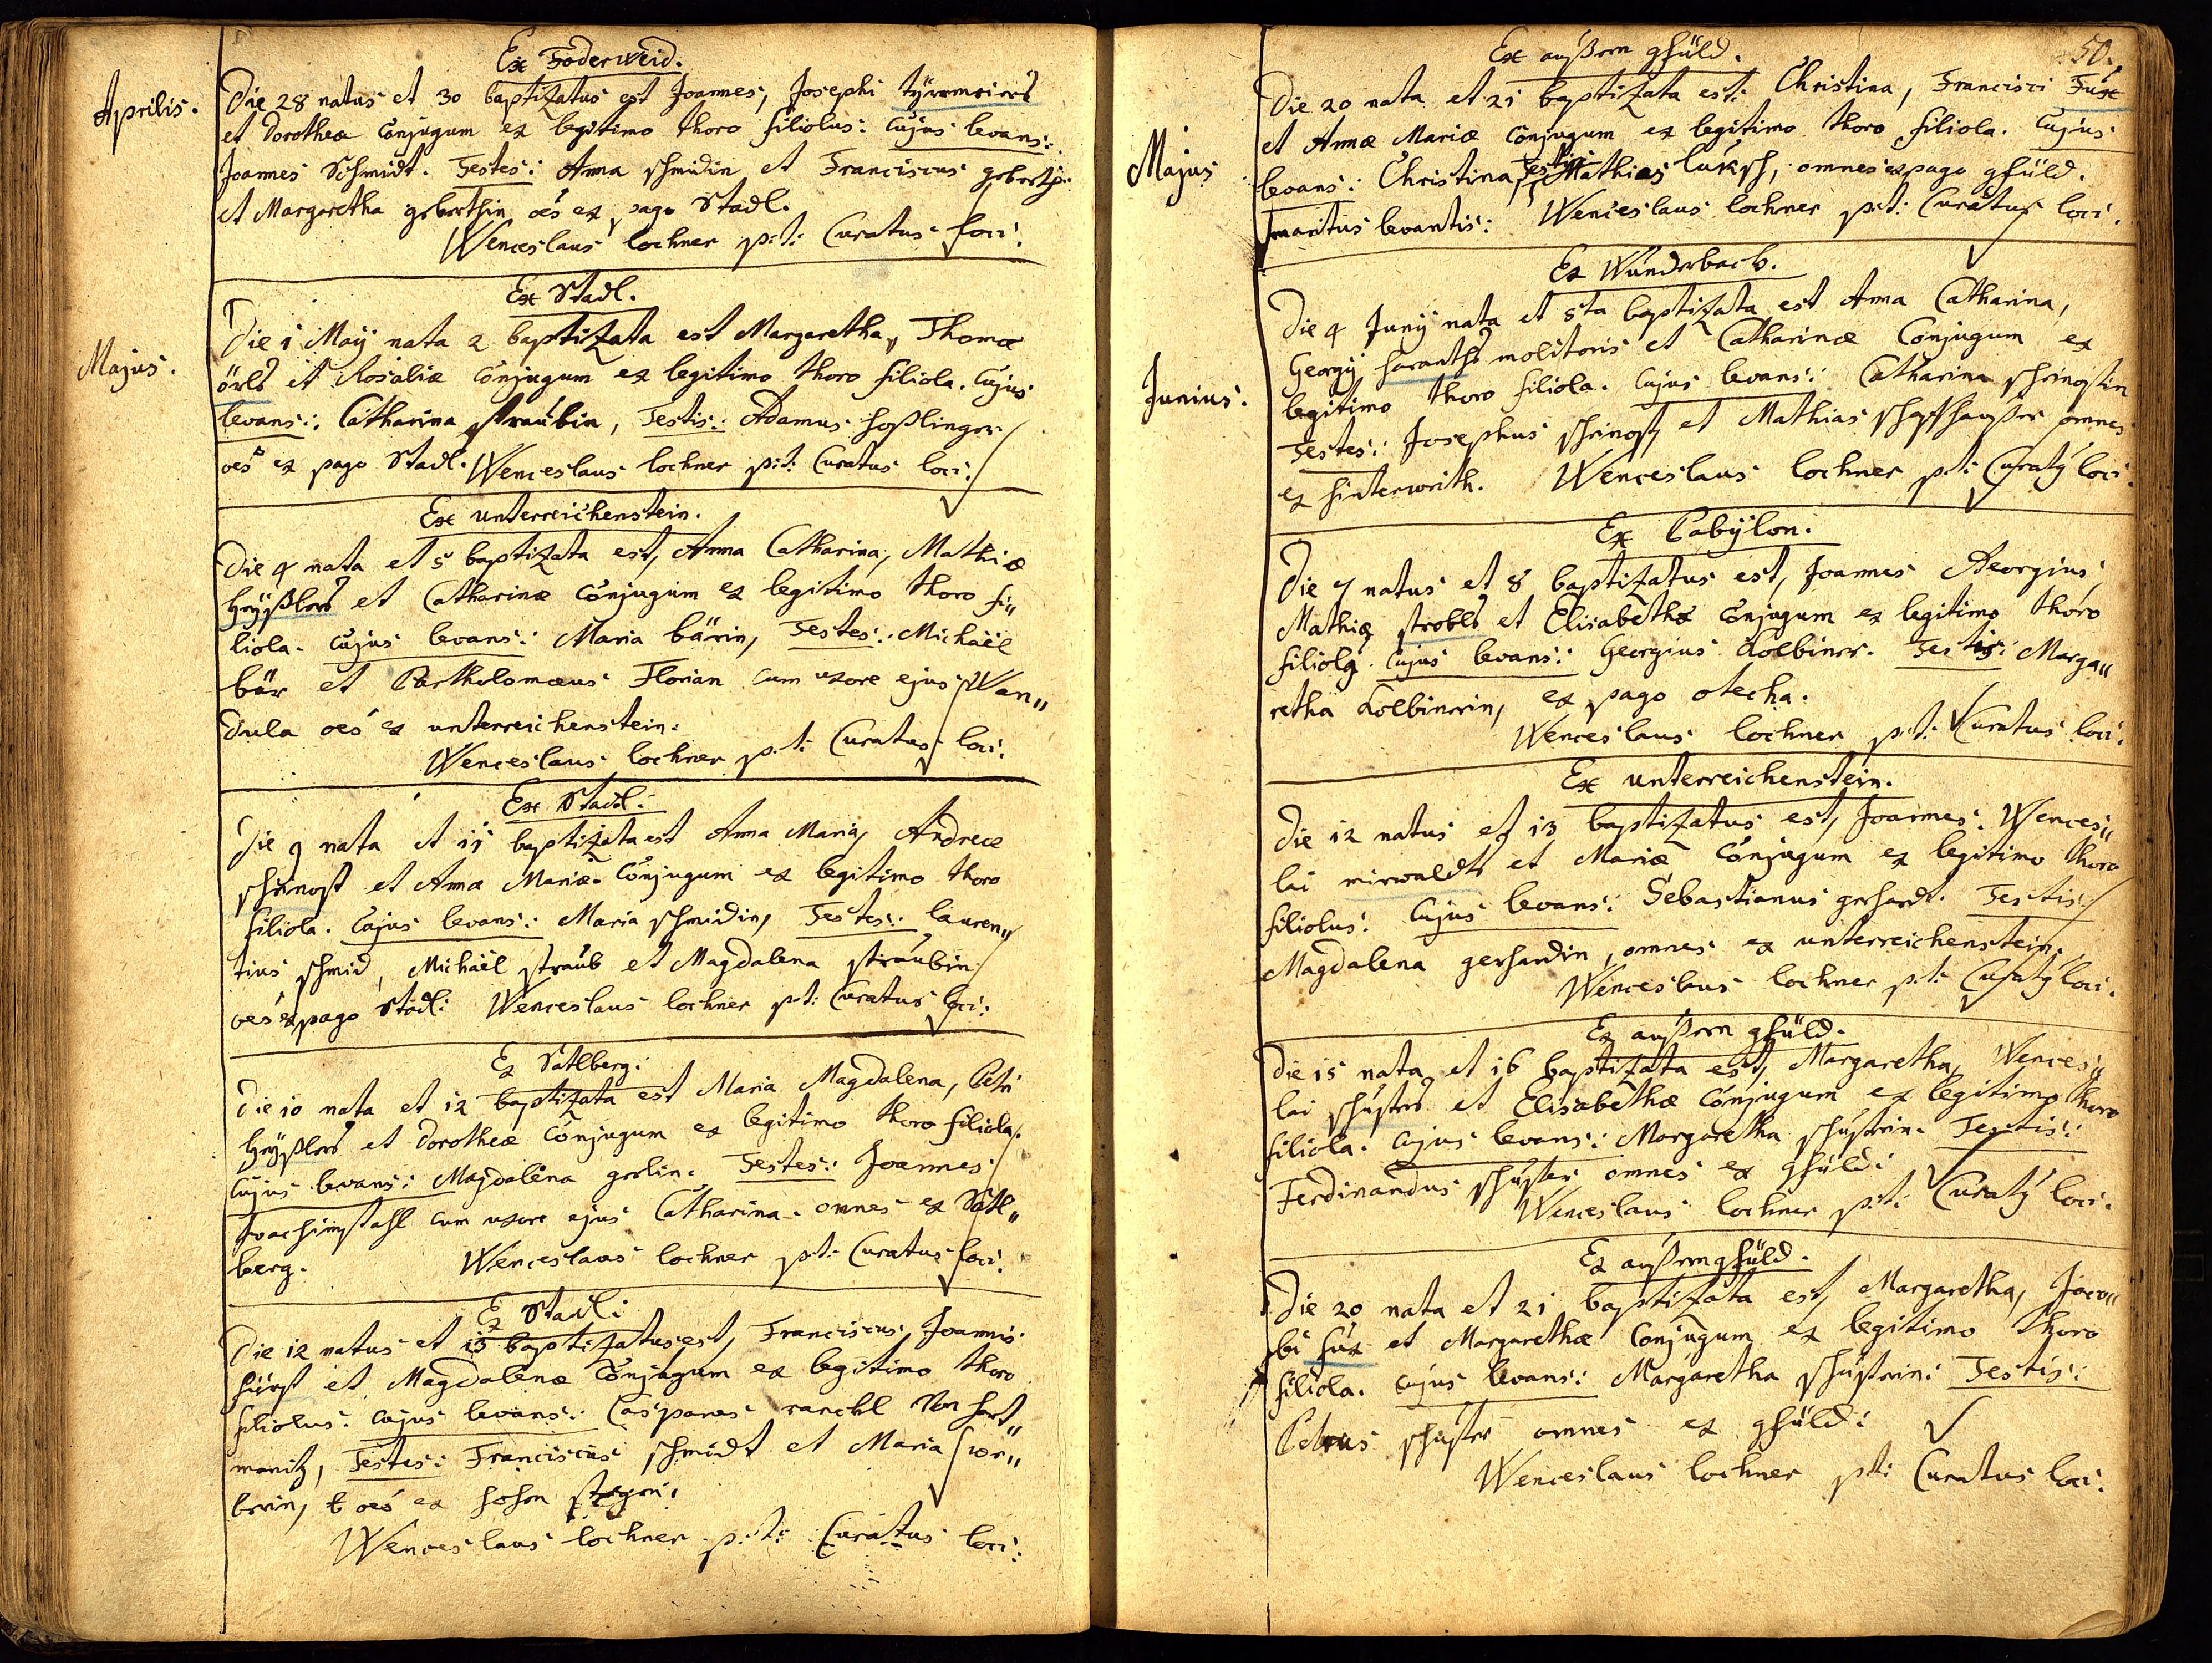 Aprilis.
Ex Foderweid.
Die 28 natus et 30 baptizatus est Joannes, Josephi
et Dorotheæ Conjugum ex legitimo thoro filiolus: Cujus levans:
Joannes Schmidt. Testes: Anna schmidin et Franciscus
et Margaretha oēs ex pago Stadl.
Wenceslaus lochner p:t: Curatus loci:
Majus.
Ex Stadl.
Die 1 Maÿ nata 2 baptizata est Margaretha, Thomæ
örls et Rosaliæ Conjugum ex legitimo thoro filiola. Cujus
levans: Catharina straubin, Testis: Adamus hoßlinger
oēs ex pago Stadl. Wenceslaus lochner p:t: Curatus loci:
Ex unterreichenstein.
Die 4 nata et 5 baptizata est, Anna Catharina, Mathiæ
heyßlers et Catharinæ Conjugum ex legitimo thoro fi„
liola. Cujus levans: Maria bärin, Testes: Michaël
bär et Bartholomæus Florian cum uxore ejus Wan„
dula oēs ex unterreichenstein:
Wenceslaus lochner p:t: Curatus loci:
Ex Stadl:
Die 9 nata et 11 baptizata est Anna Maria, Andreæ
schrinost et Annæ Mariæ Conjugum ex legitimo thoro
filiola. Cujus levans: Maria schmidin, Testes: lauren„
tius schmid, Michaël straub et Magdalena straubin
oēs ex pago Stadl: Wenceslaus lochner p:t: Curatus loci:
Ex Satlberg:
Die 10 nata et 12 baptizata est Maria Magdalena, Petri
heyßlers et Dorotheæ Conjugum ex legitimo thoro filiola.
Cujus levans: Magdalena gerlin. Testes: Joannes
Joachimstahl cum uxore ejus Catharina. omnes ex Satl„
berg. Wenceslaus lochner p:t: Curatus loci:
Ex Stadl:
Die 12 natus et 13 baptizatus est, Franciscus Joannis
fürst et Magdalenæ Conjugum ex legitimo thoro
filiolus: Cujus levans: Casparus ranckl Von hart„
manitz, Testes: Franciscus schmidt et Maria
oēs ex hohen
Wenceslaus lochner p:t: Curatus loci:
50.
Majus
Ex außern gfüld.
Die 20 nata et 21 baptizata est: Christina, Francisci Fux
et Annæ Mariæ Conjugum ex legitimo thoro filiola. Cujus
levans: Christina, Testis: Mathias luksch, omnes ex pago gfüld.
maritus levantis: Wenceslaus lochner p:t: Curatus loci:
Junius.
Ex Wunderbach.
Die 4 Junÿ nata et 5ta baptizata est Anna Catharina,
Georgÿ haranths molitoris et Catharinæ Conjugum ex
legitimo thoro filiola. Cujus levans: Catharina schrinostin
Testes: Josephus schrinost et Mathias omnes
ex hinterwrith. Wenceslaus lochner p:t: Curatÿ loci:
Ex Babÿlon.
Die 7 natus et 8 baptizatus est, Joannes Georgius,
Mathiæ strobls et Elisabethæ Conjugum ex legitimo thoro
filiolꝯ. Cujus levans: Georgius Kolbinrr. Testis: Marga„
retha Kolbinrrin, ex pago otecha.
Wenceslaus lochner p:t: Curatus loci:
Ex unterreichenstein.
Die 12 natus et 13 baptizatus est, Joannes: Wences„
lai mirwaldts et Mariæ Conjugum ex legitimo thoro
filiolus: Cujus levans: Sebastianus gerhardt. Testis:
Magdalena gerhardin, omnes ex unterreichenstein.
Wenceslaus lochner p:t: Curatÿ loci.
Ex außern gfüld.
Die 15 nata et 16 baptizata est, Margaretha, Wences„
lai schusters et Elisabethæ Conjugum ex legitimo thoro
filiola. Cujus levans: Margaretha schusterin. Testis:
Ferdinandus schuster omnes ex gfüld:
Wenceslaus lochner p:t: Curatÿ loci.
Ex außern gfüld.
Die 20 nata et 21 baptizata est, Margaretha, Jaco„
bi fux et Margarethæ Conjugum ex legitimo thoro
filiola. Cujus levans: Margaretha schusterin: Testis:
Petrus schuster omnes ex gfüld:
Wenceslaus lochner p:t: Curatus loci: